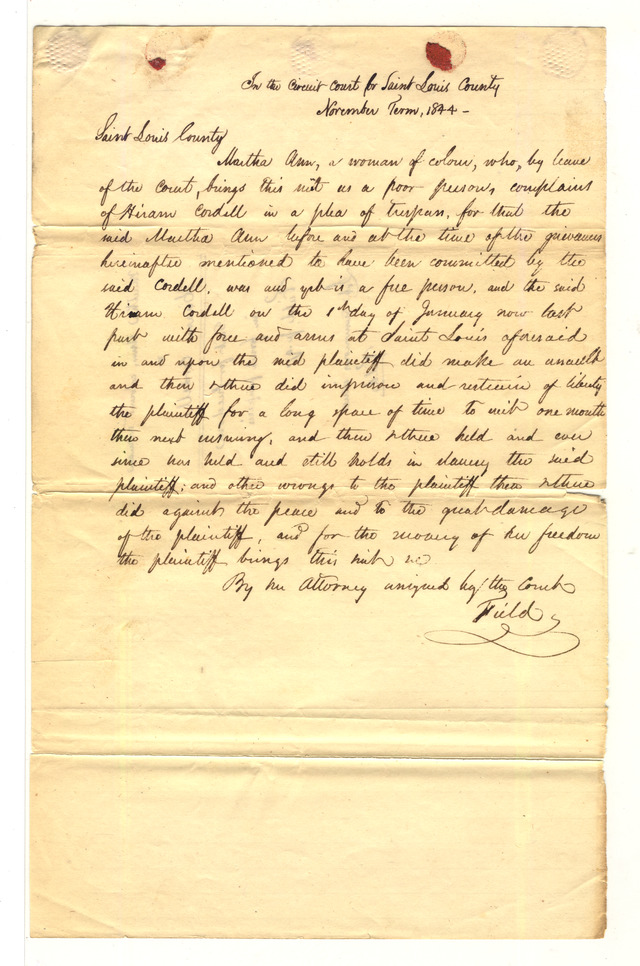 In the Circuit Court for Saint Louis County
November Term, 1844 -
Saint Louis County
Martha Ann, a woman of colour, who, by leave
of the Court, brings this suit as a poor person, complains
of Hiram Cordell in a plea of trespass, for that the
said Martha Ann before and at the time of the grievances
hereinafter mentioned to have been committed by the
said Cordell, was and yet is a free person, and the said
Hiram Cordell on the 1st day of January now last
past with force and arms at Saint Louis aforesaid
in and upon the said plaintiff did make an assault
and then & there did imprison and restrain of liberty
the plaintiff for a long space of time to wit one month
then next ensuing, and then & there held and ever
since has held and still holds in slavery the said
plaintiff; and other wrongs to the plaintiff then & there
did against the peace and to the great damage
of the plaintiff, and for the recovery of her freedom
the plaintiff brings this suit &c
By her Attorney assigned by the Court
Field